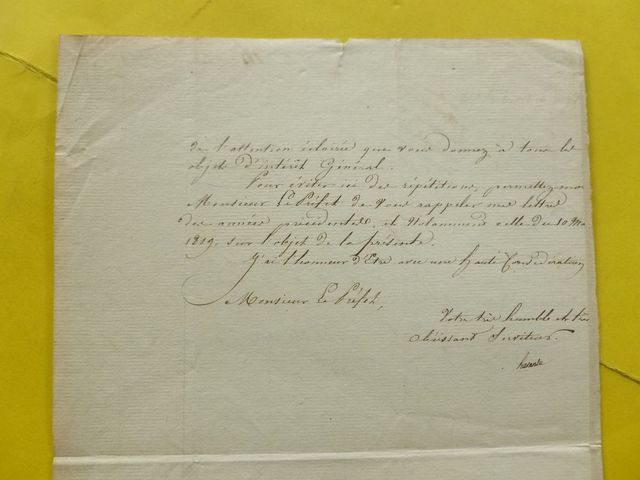 de l'attention éclairée que vous donnez à tous les
objets d'intérêt Général.
Pour éviter ici des répétitions, permettez-moi
Monsieur Le Préfet de vous rappeler mes lettres
des années précédentes, et Notamment celle du 10 Mai
1819, sur l'objet de la présente.
J'ai l'honneur d'Etre avec une haute Considération
Monsieur Le Préfet,
Votre très humble et très
obéissant Serviteur.